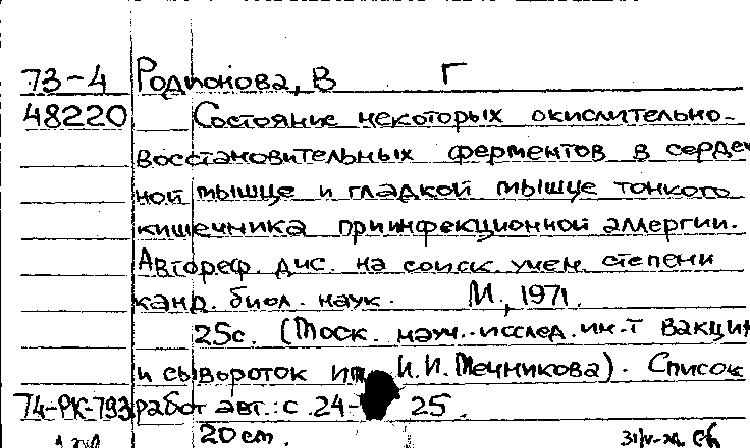 73-4 Родионова, В Г
48220 Состояние некоторых окислительно-
восстановительных ферментов в сердеч
ной мышце и гладкой мышце тонкого
кишечника приинфекционной аллергии.
Автореф. дис. на соиск. учен. степени
канд. биол. наук. М., 1971.
25с. (Моск. науч.-исслед. ин-т вакцин
и сывороток им. И.И. Мечникова). Список
74-РК-793 работ авт.: с. 24-25.
20 cm.